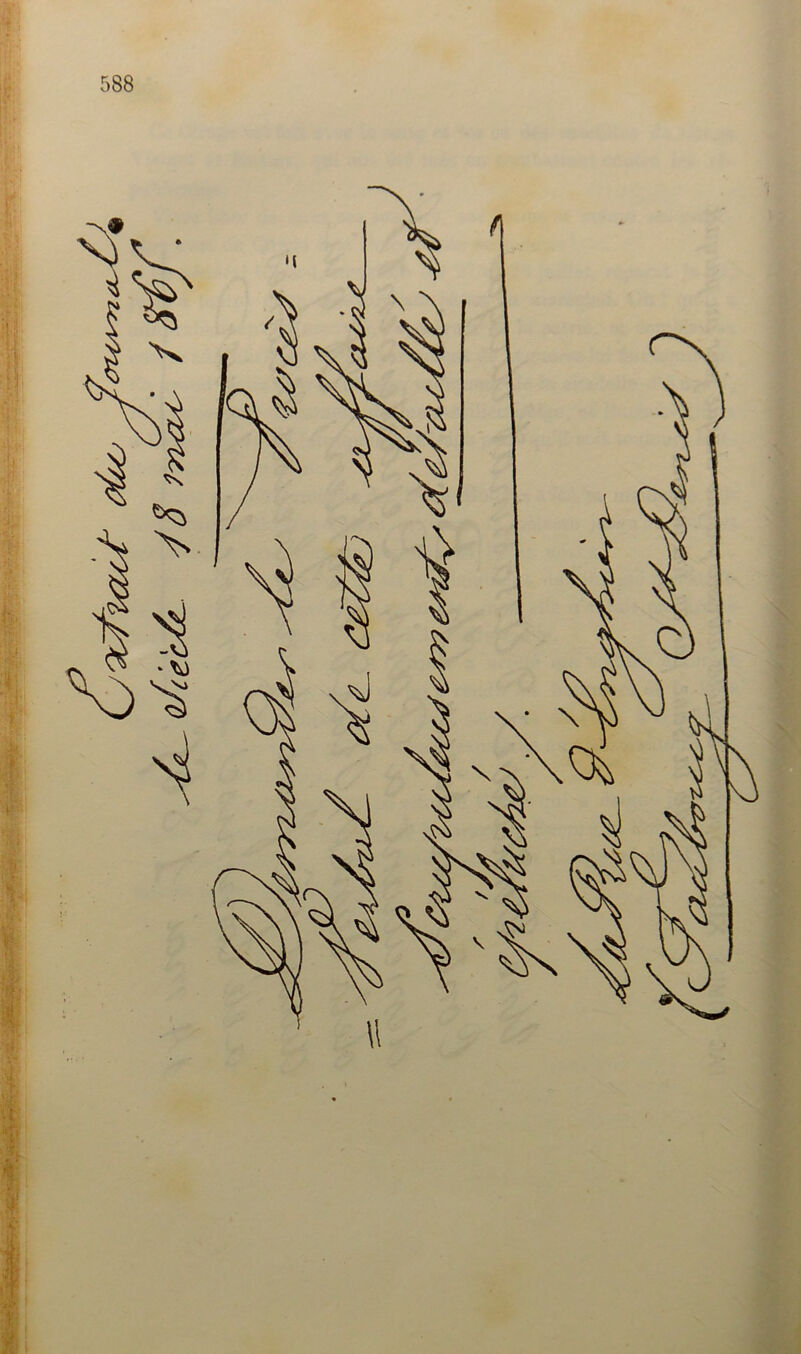 588
Extrait du Journal.
le Siècle 18 mai 1865.
Demander le Procès =
= Verbal de cette affaire
Scrupuleusement détaillé et
épeluché /.
La Rue d'Enghien
(Faubourg St Denis)